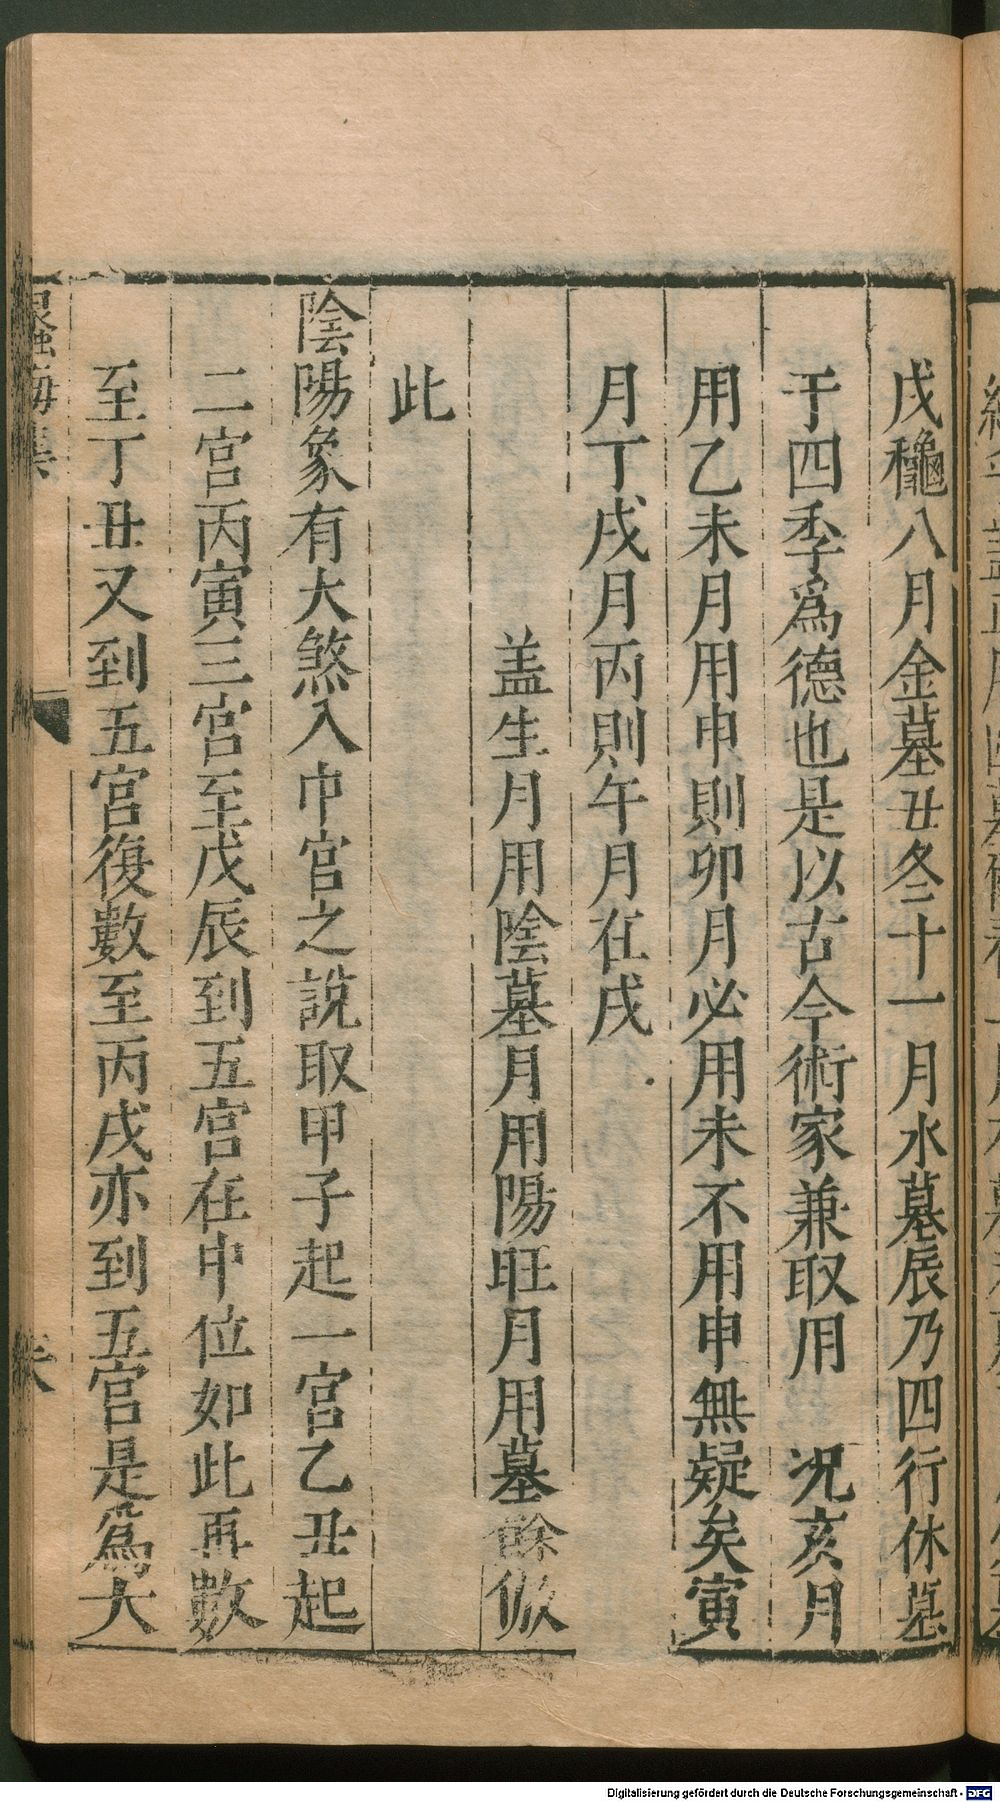 戌龝八月金墓丑冬十一月水墓辰乃四行休墓
于四季爲德也是以古今術家兼取用　况亥月
用乙未月用申則卯月必用未不用申無疑矣寅
月丁戌月丙則午月在戌
盖生月用陰墓月用陽旺月用墓餘倣
此
陰陽象有大煞入中宮之說取甲子起一宮乙丑起
二宮丙寅三宮至戊辰到五宮在中位如此再數
至丁丑又到五宮復數至丙戌亦到五宮是爲大
蠡海集
Digitalisierung gefördert durch die Deutsche Forschungsgemeinschaft - DFG